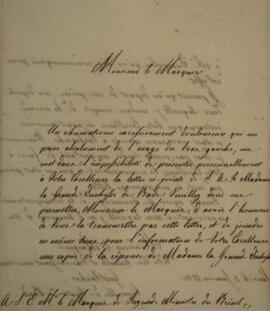 Monsieur le Marquis
Un rhumatisme excessivement douloureux qui me
prive absolument de l'usage du bras gauche, me
met dans l'impossibilité de présenter personnellement
à Votre Excellence la lettre ci-jointe de S. A. R. Madame
la Grande Duchesse de Bade. Veuillez donc me
permettre, Monsieur le Marquis, d'avoir l'honneur
de vous la transmettre par cette lettre, et de joindre
en même tems pour l'information de Votre Excellence
une copie de la réponse de Madame la Grande Duchesse
A S. E. Mr. le Marquis de Rezende Ministre du Brésil